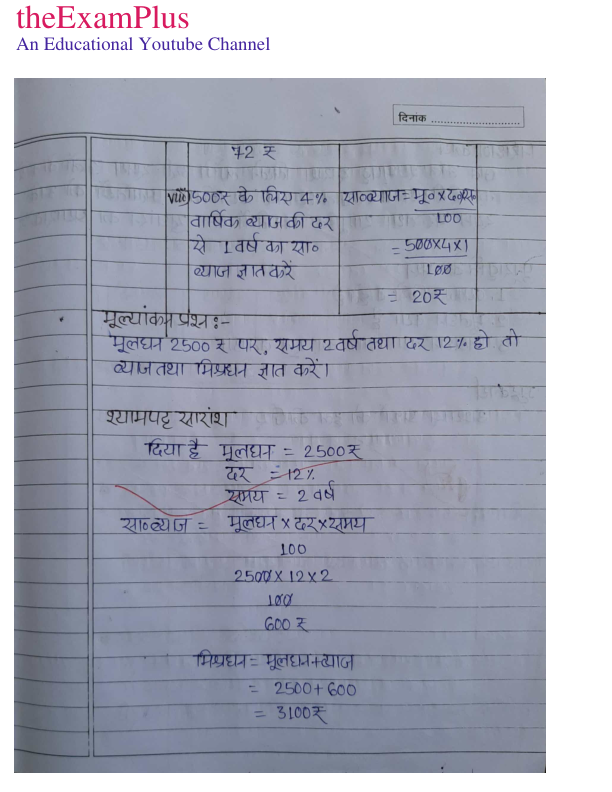 theExamPlus
An Educational Youtube Channel
दिनांक ..............................
72 ₹
viii) 500₹ के लिए 4% सा०ब्याज = मू०×द०×स०
100
वार्षिक ब्याज की दर
से 1 वर्ष का सा० = 500×4×1
ब्याज ज्ञात करें 100
= 20₹
मूल्यांकन प्रश्न :-
मूलधन 2500 ₹ पर, समय 2 वर्ष तथा दर 12% हो तो
ब्याज तथा मिश्रधन ज्ञात करें।
श्यामपट्ट सारांश
दिया है मूलधन = 2500₹
दर = 12%
समय = 2 वर्ष
सा०ब्याज = मूलधन × दर × समय
100
2500 × 12 × 2
100
600 ₹
मिश्रधन = मूलधन + ब्याज
= 2500 + 600
= 3100₹